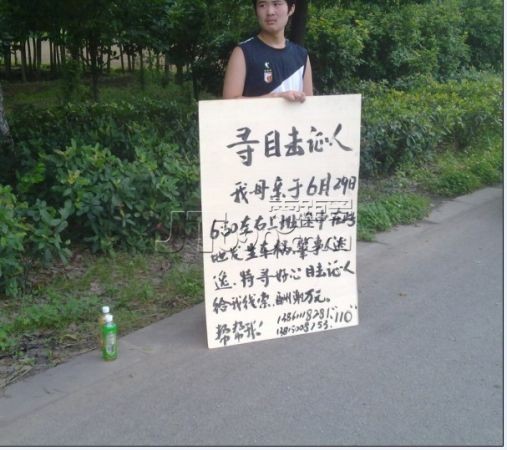 寻目击证人
我母亲于6月29日
6:30左右上班途中在此
地发生车祸,肇事人逃
逸,特寻好心目击证人
给我线索,酬谢万元。
帮帮我!
"110"